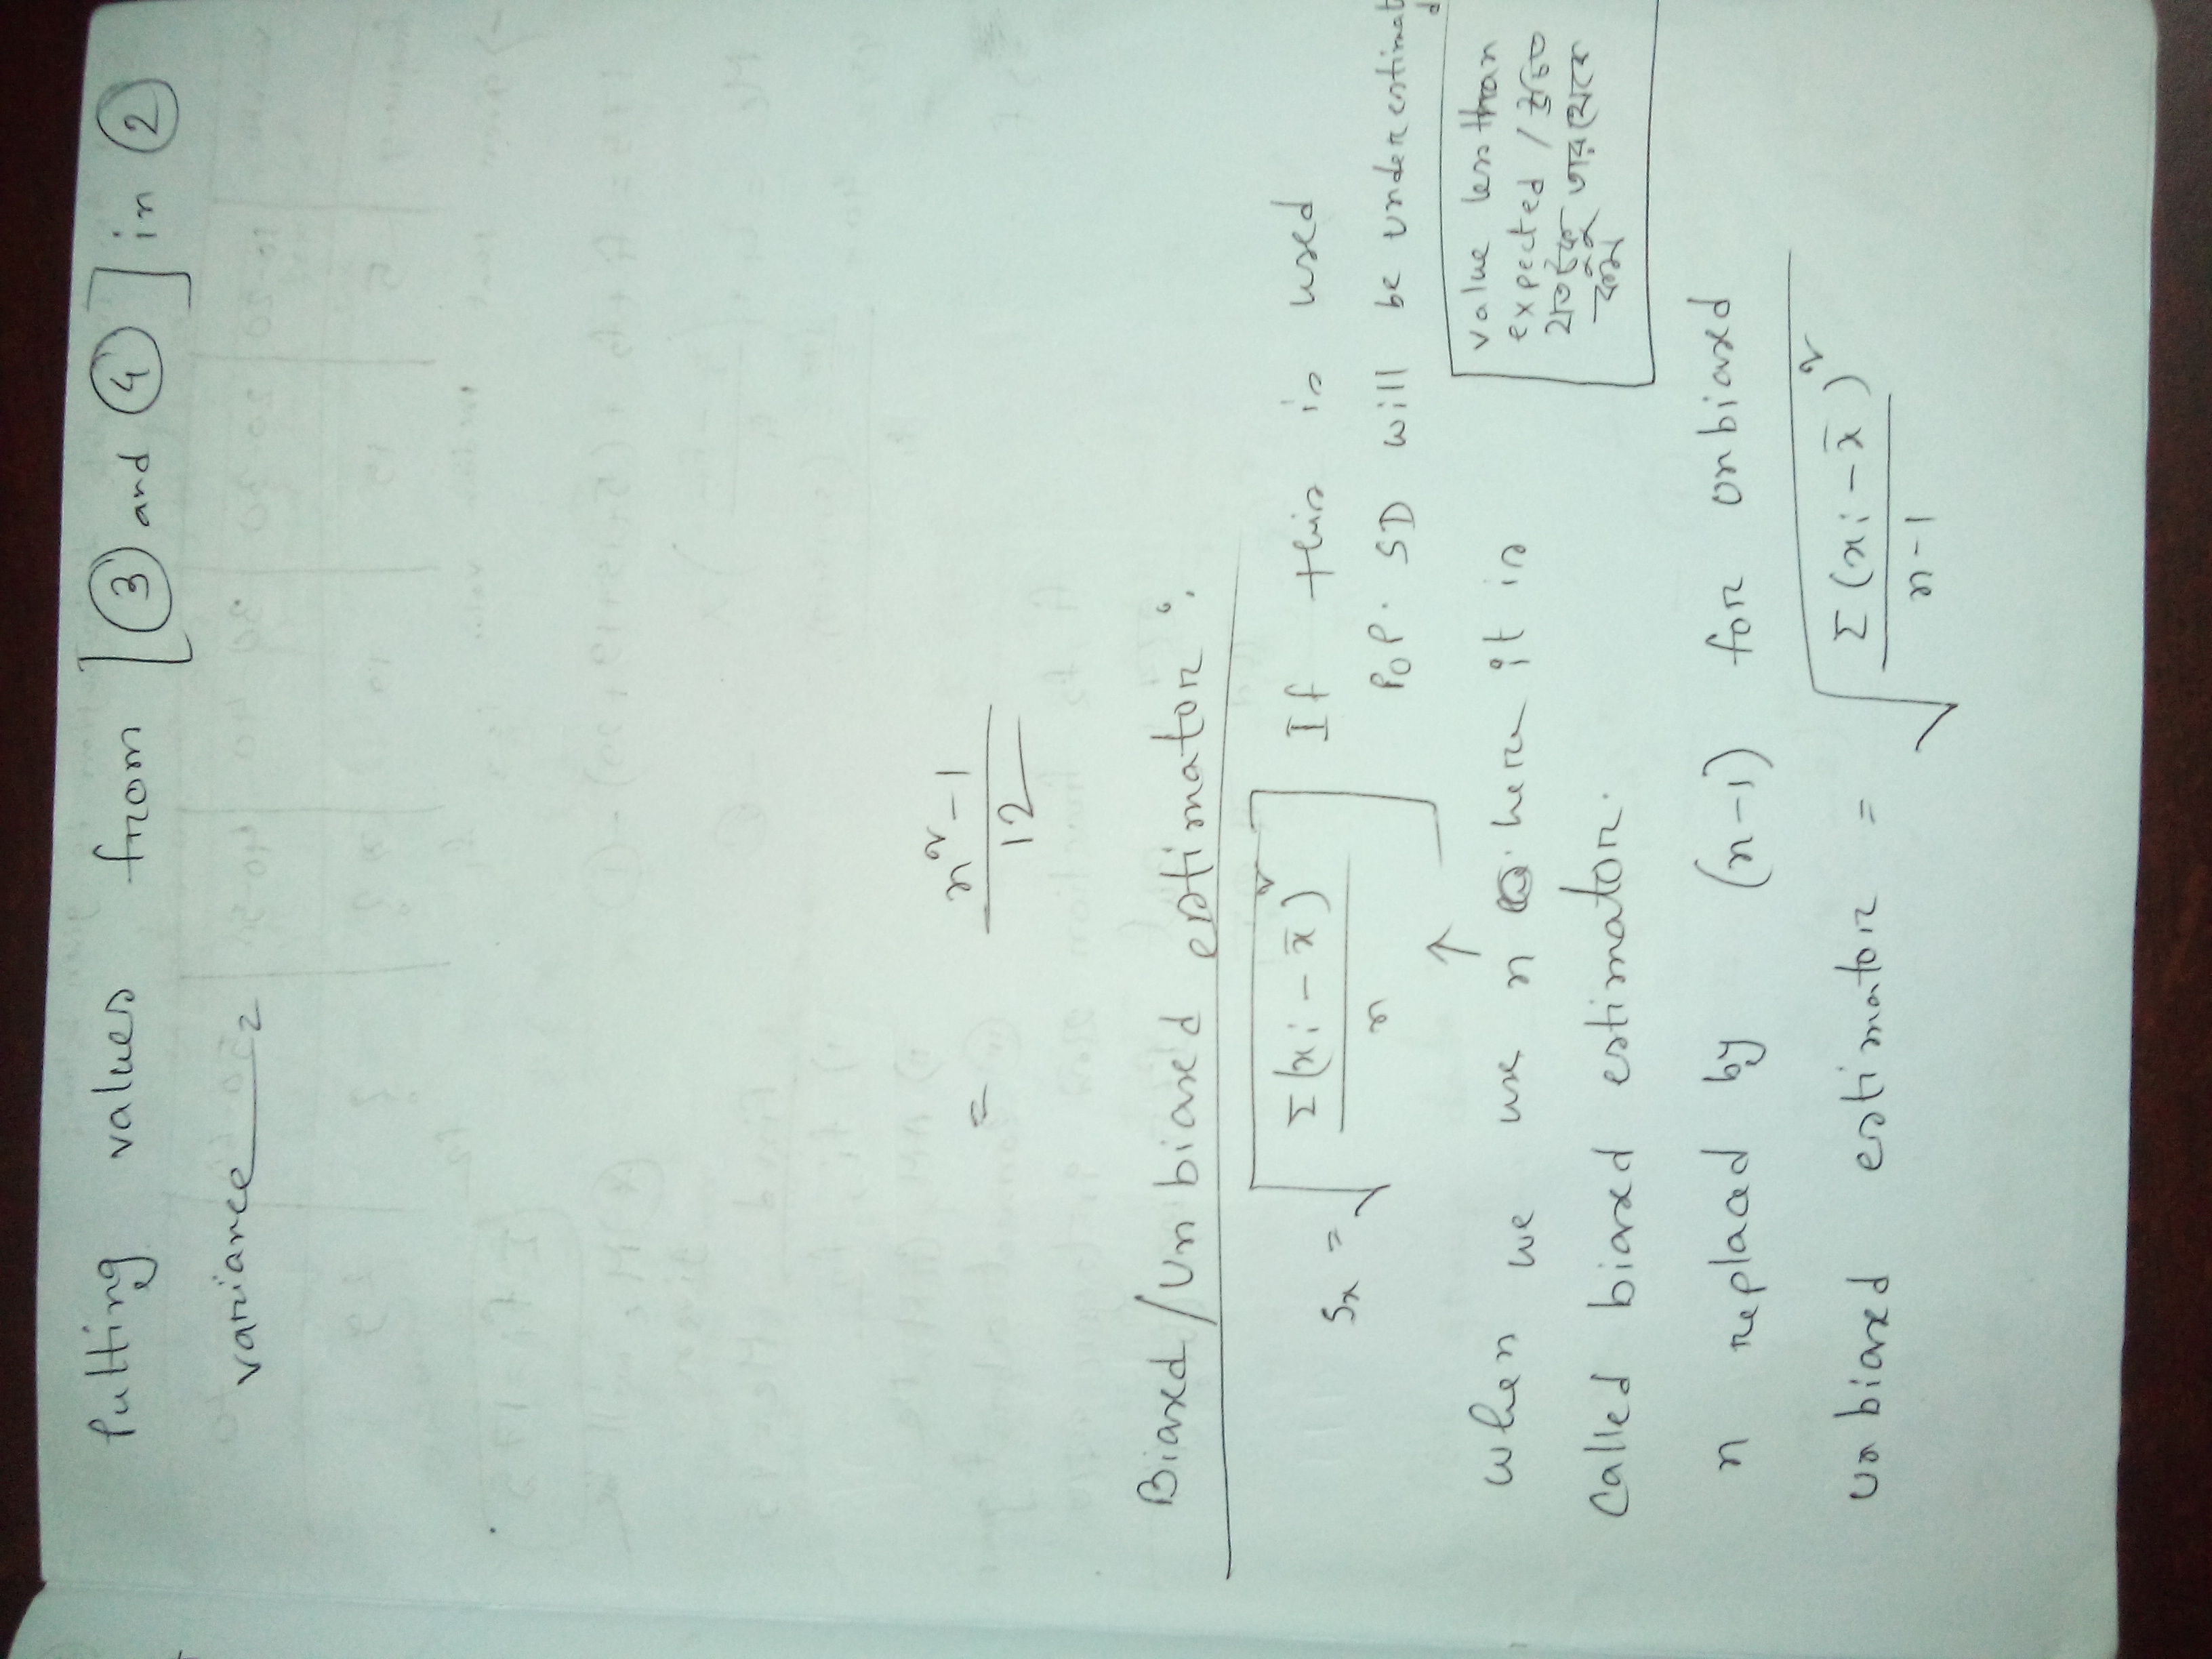 Putting values from [③ and ④] in ②
variance =
= n²-1 / 12
Biased/Unbiased estimator :
Sx = √(Σ(xi - x̄)² / n) ] If this is used
POP. SD will be underestimated
value less than
expected / উচিত
কম
when we use n here it is
Called biased estimator.
n replaced by (n-1) for unbiased
unbiased estimator = √(Σ(xi - x̄)² / n-1)